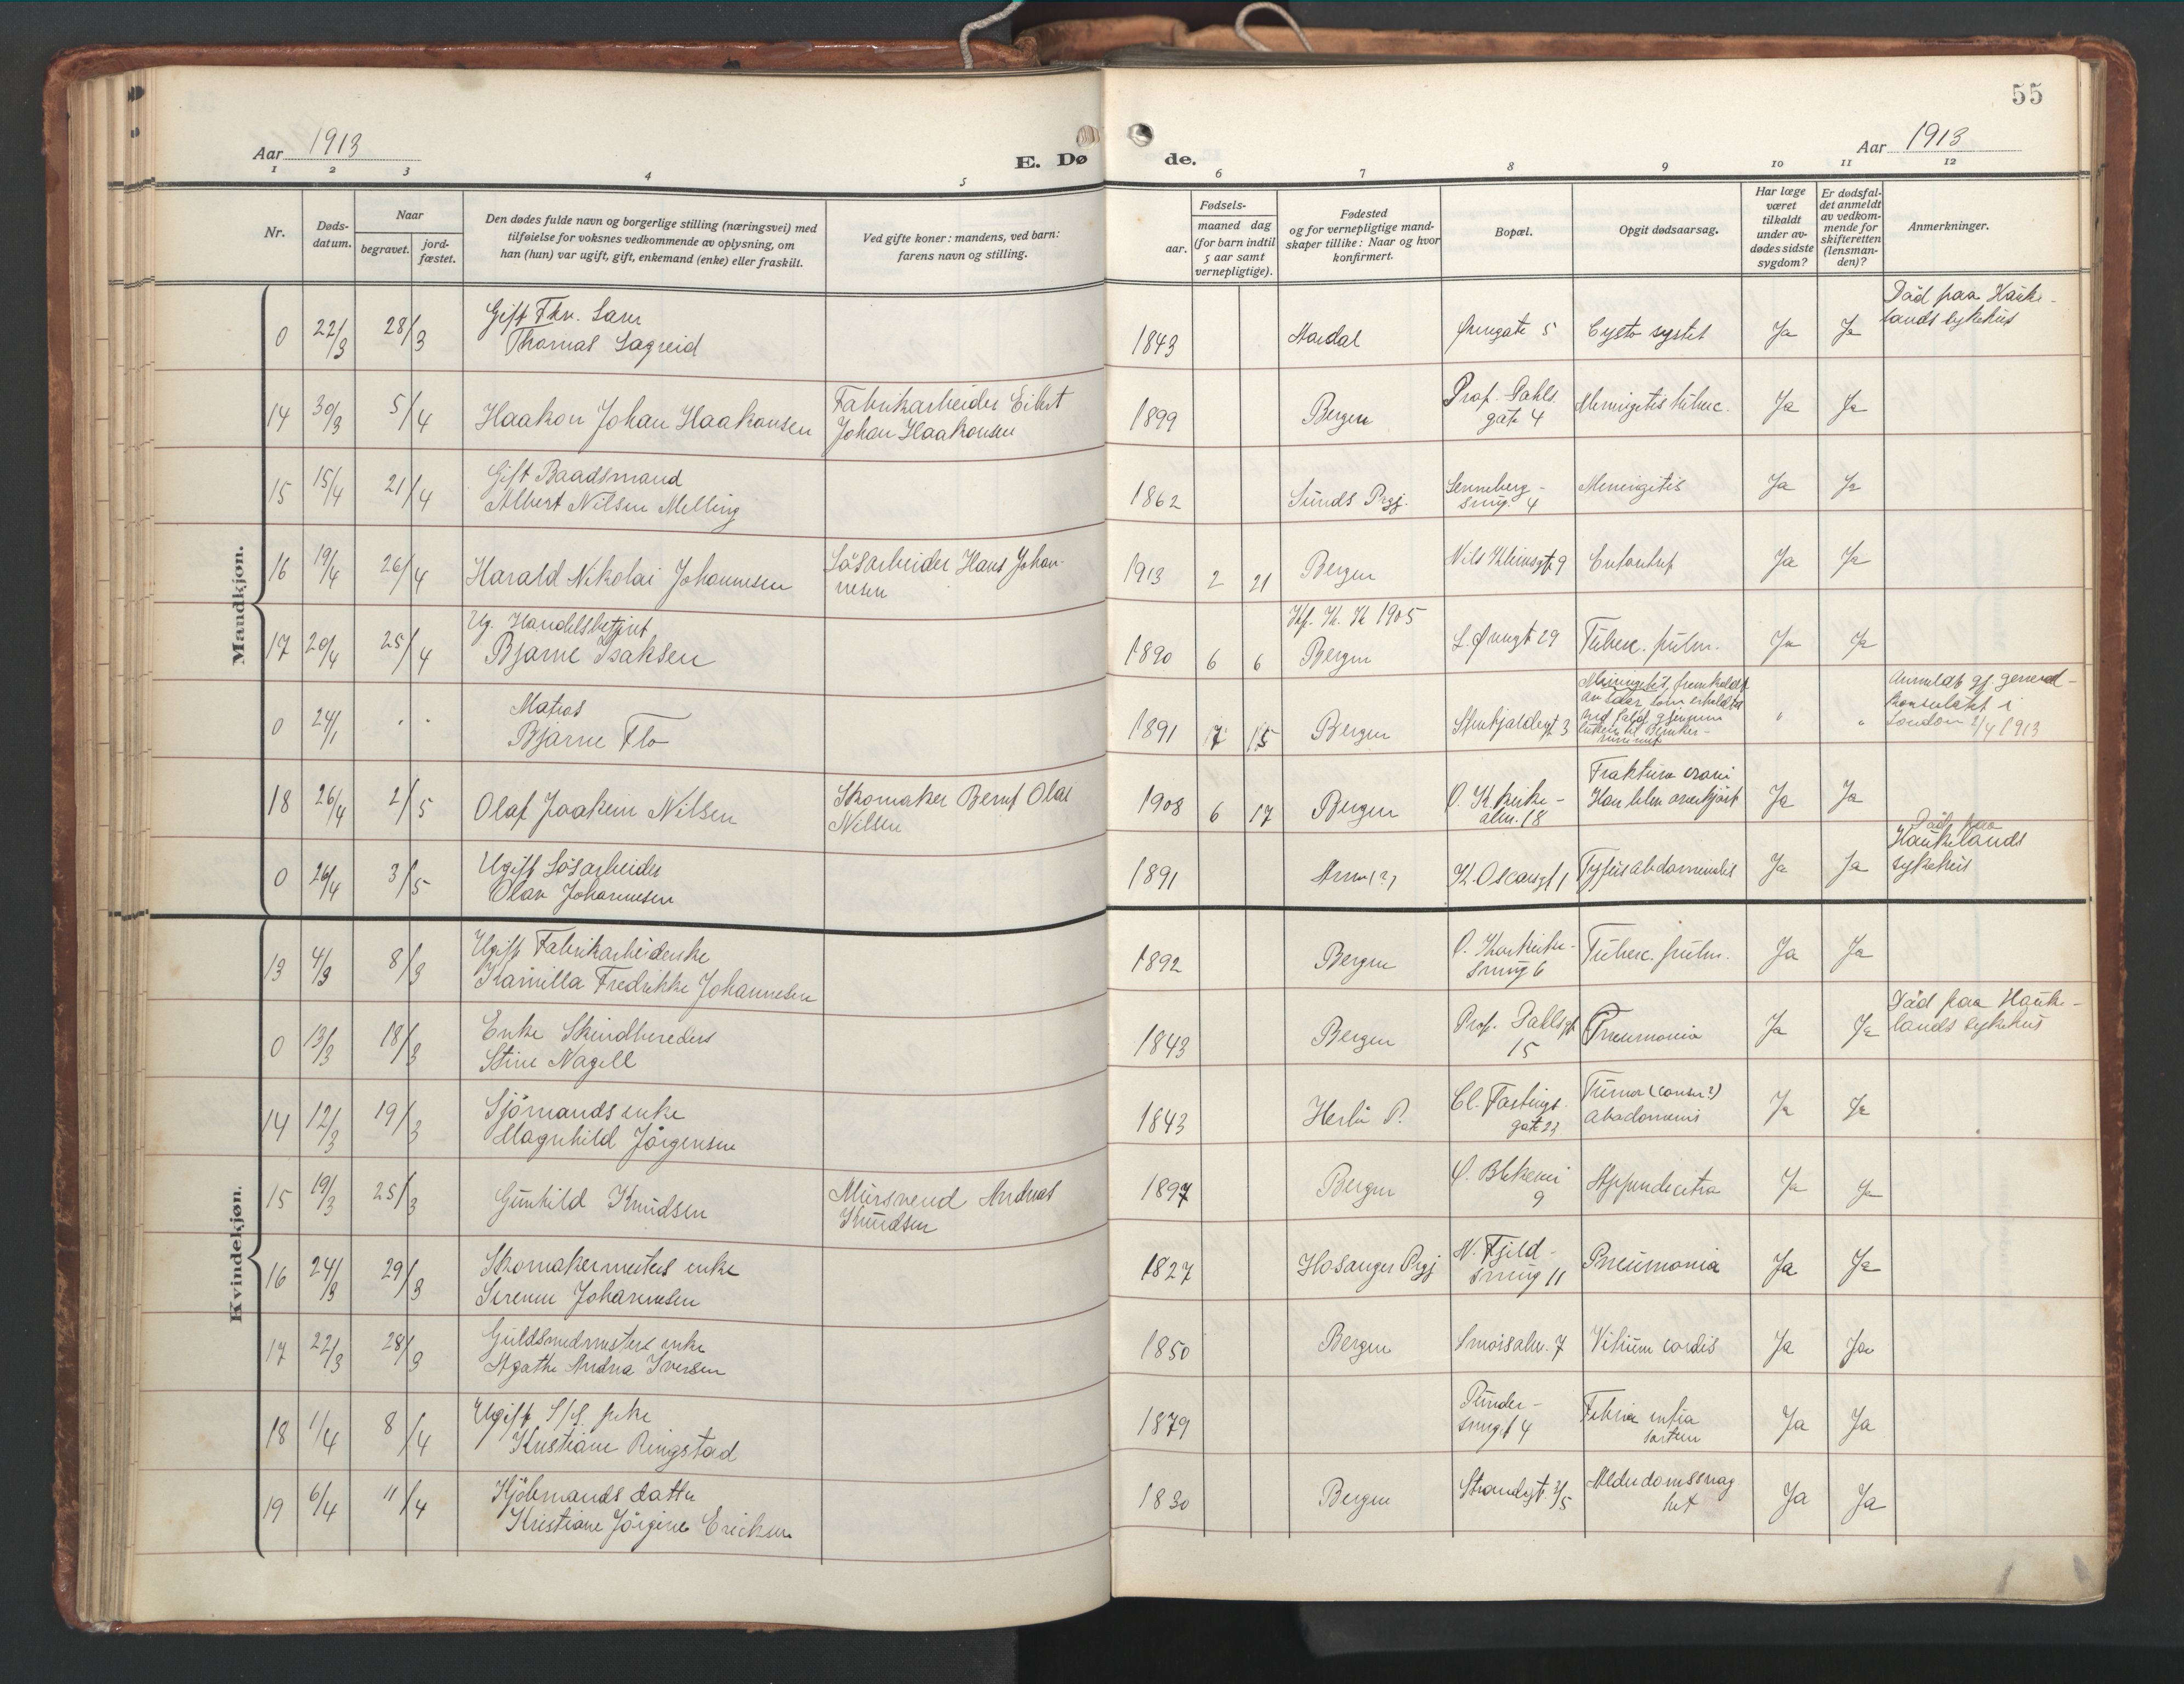 55
Aar 1913
E. Dø
de.
Aar 1913
1 2 3 4 5 6 7 8 9 10 11 12
Nr.
Døds-
datum.
Naar
begravet.
jord-
fæstet.
Den dødes fulde navn og borgerlige stilling (næringsvei) med
tilføielse for voksnes vedkommende av oplysning, om
han (hun) var ugift, gift, enkemand (enke) eller fraskilt.
Ved gifte koner: mandens, ved barn:
farens navn og stilling.
Fødsels-
aar.
maaned dag
(for barn indtil
5 aar samt
vernepligtige).
Fødested
og for vernepligtige mand-
skaper tillike: Naar og hvor
konfirmert.
Bopæl.
Opgit dødsaarsag.
Har læge
været
tilkaldt
under av-
dødes sidste
sygdom?
Er dødsfal-
det anmeldt
av vedkom-
mende for
skifteretten
(lensman-
den)?
Anmerkninger.
Mandkjøn.
0 22/3 28/3 Gift
Thomas Sagreid
1843 Aardal Øvregate 5 Ja Ja
Död paa Hauke-
lands sykehus
14 30/3 5/4 Haakon Johan Haakonsen
Fabrikarbeider Eilert
Johan Haakonsen
1899 Bergen
Prof. Dahls
gate 4
Meningitis tuberc. Ja Ja
15 15/4 21/4 Gift Baadsmand
Albert Nilsen Melling
1862 Sunds Prgj.
Senneberg-
smug. 4
Meningitis Ja Ja
16 19/4 26/4 Harald Nikolai Johannesen
Løsarbeider Hans Johan-
nesen
1913 2 21 Bergen Nils Kleimsgt 9 Ja Ja
17 20/4 25/4 Ug. Handelsbetjent
Bjarne Isaksen
1890 6 6
Kf. K. K 1905
Bergen
L. Øvregt 29 Tuberc. pulm. Ja Ja
0 24/1 " " Matros
Bjarne Flo
1891 7 15 Bergen Stenkjeldergt 3
Meningitis, fremkaldt
av saar som erholdtes
ved fald gjennem
" "
Anmeldt gj. general-
konsulatet i
London 2/4 1913
18 26/4 2/5 Olaf Joakim Nilsen
Skomaker Bernt Olai
Nilsen
1908 6 17 Bergen
O. K. kirke-
alm. 18
Fraktura crani
Han blev overkjört
Ja Ja
0 26/4 3/5 Ugift Løsarbeider
Olav Johannesen
1891 K. Oscarsgt 1 Tyfus abdominalis Ja Ja
Död paa
Haukelands
sykehus
Kvindekjøn.
13 4/3 8/3 Ugift Fabrikarbeiderske
Kamilla Fredrikke Johannesen
1892 Bergen
O. Korskirke-
smug 6
Tuberc. pulm. Ja Ja
0 13/3 18/3 Enke Skindbereders
Stine Nagell
1843 Bergen
Prof. Dahlsgt
15
Pneumonia Ja Ja
Död paa Hauke-
lands sykehus
14 12/3 19/3 Sjömands enke
Magnhild Jörgensen
1843 Herlö P.
Cl. Fastings
gate 23
Tumor (cancer?)
abadomenis
Ja Ja
15 19/3 25/3 Gunhild Knudsen
Mursvend Andreas
Knudsen
1897 Bergen
Ø. Blekevei
9
Ja Ja
16 24/3 29/3 Skomakermesters enke
Serenne Johannesen
1827 Hosanger Prgj
N. Fjeld-
smug 11
Pneumonia Ja Ja
17 22/3 28/3 Guldsmedmesters enke
Agathe Andrea Iversen
1850 Bergen Smørsalm. 7 Vitium cordis Ja Ja
18 1/4 8/4 Ugift
Kristiane Ringstad
1879
smugt 4
Ja Ja
19 6/4 11/4 Kjöbmands datter
Kristiane Jörgine Ericksen
1830 Bergen Strandgt 3/5
Alderdomssvag
het
Ja Ja